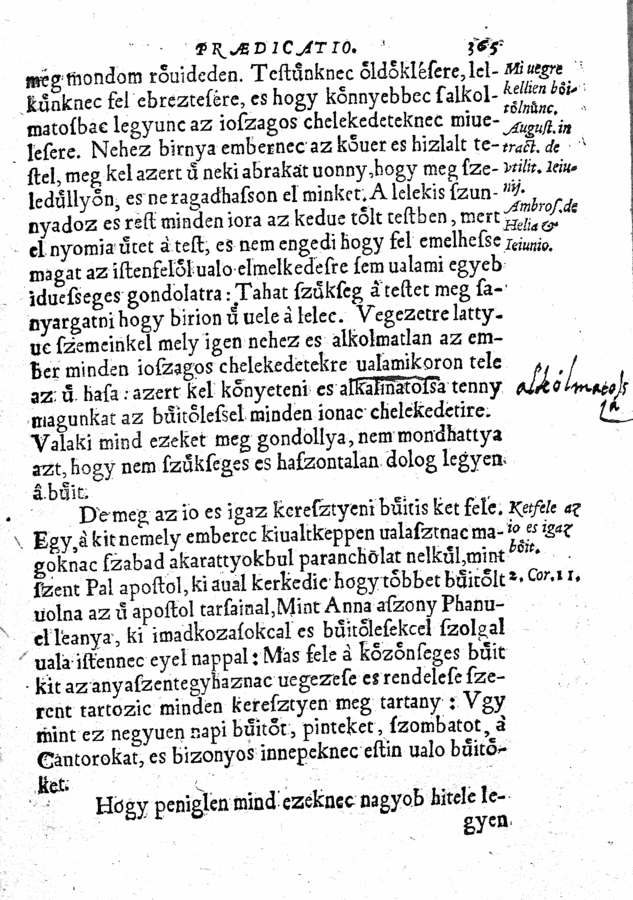 PRÆDICATIO. 365
meg mondom rőuideden. Teſtűnknec őldőkléſere, lel-
kűnknec fel ebrezteſére, es hogy kőnnyebbec ſalkol-
matoſbac legyunc az ioſzagos chelekedeteknec miue-
leſere. Nehez birnya embernec az kőuer es hizlalt te-
ſtel, meg kel azert ű neki abrakát uonny, hogy meg ſze-
ledűllyőn, es ne ragadhaſſon el minket. A lelekis ſzun-
nyadoz es reſt minden iora az kedue tőlt teſtben, mert
el nyomia űtet à teſt, es nem engedi hogy fel emelheſſe
magat az iſtenfelől ualo elmelkedeſre ſem ualami egyeb
idueſſeges gondolatra: Tahat ſzűkſeg â teſtet meg ſa-
nyargatni hogy birion ű uele à lelec. Vegezetre latty-
uc ſzemeinkel mely igen nehez es alkolmatlan az em-
ber minden ioſzagos chelekedetekre ualamikoron tele
az ű haſa: azert kel kőnyeteni es alkalmatoſſa tenny
magunkat az bűitőleſſel minden ionac chelekedetire.
Valaki mind ezeket meg gondollya, nem mondhattya
azt, hogy nem ſzűkſeges es haſzontalan dolog legyen
â bűit.
De meg az io es igaz kereſztyeni bűitis ket fele.
Egy, à kit nemely emberec kiualtkeppen ualaſztnac ma-
goknac ſzabad akarattyokbul parancholat nelkűl, mint
ſzent Pal apoſtol, ki aual kerkedic hogy tőbbet bűitőlt
uolna az ű apoſtol tarſainal, Mint Anna aſzony Phanu-
el leanya, ki imadkozaſokcal es bűitőleſekcel ſzolgal
uala iſtennec eyel nappal: Mas fele à kőzőnſeges bűit
kit az anyaſzentegyhaznac uegezeſe es rendeleſe ſze-
rent tartozic minden kereſztyen meg tartany: Vgy
mint ez negyuen napi bűitőt, pinteket, ſzombatot, à
Cantorokat, es bizonyos innepeknec eſtin ualo bűitő-
ket.
Hogy peniglen mind ezeknec nagyob hitele le-
gyen
Mi uegre
kellien bői-
tőlnűnc.
Auguſt. in
tract. de
vtilit. ieiu-
nij.
Ambroſ. de
Helia &
Ieiunio.
alkólmatoſs
Ketfele az
io es igaz
bőit.
2. Cor. 11.